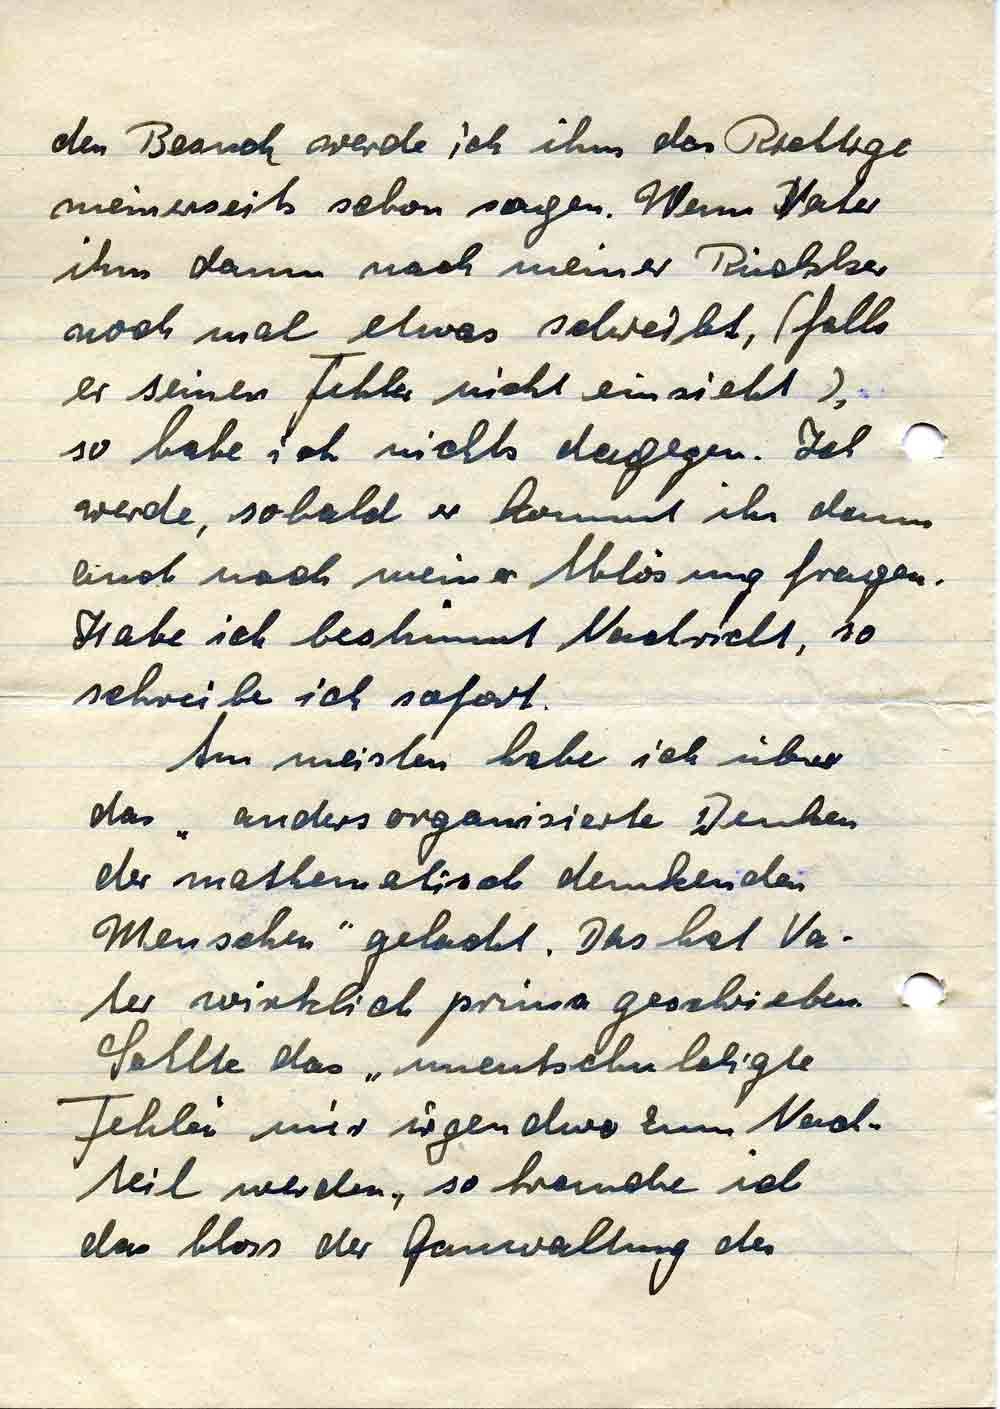 den Besuch werde ich ihm das Richtige
meinerseits schon sagen. Wenn Vater
ihm dann nach meiner Rückker
noch mal etwas schreibt, (falls
er seinen Fehler nicht einsieht),
so habe ich nichts dagegen. Ich
werde, sobald er kommt ihn dann
auch nach meiner Ablösung fragen.
Habe ich bestimmt Nachricht, so
schreibe ich sofort.
Am meisten habe ich über
das „andersorganisierte Denken
der mathematisch denkenden
Menschen" gelacht. Das hat Va-
ter wirklich prima geschrieben
Sollte das „unentschuldigte
Fehlen mir irgendwo zum Nach-
teil werden, so brauche ich
das bloss der Gauwaltung des